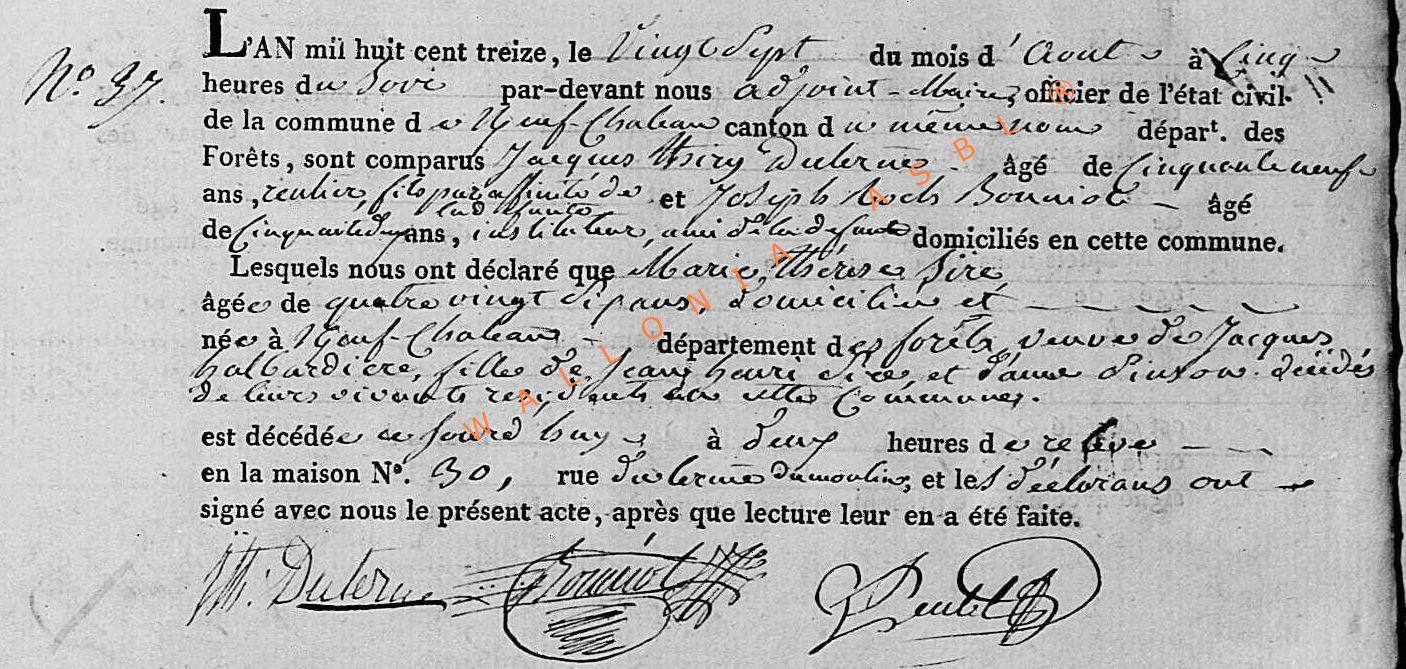 N.º 37.
L'AN mil huit cent treize, le Vingt Sept du mois d'Aout à Cinq
heures du Soir par-devant nous adjoint-Maire, officier de l'état civil
de la commune de Neuf-Chateau canton du même nom départ. des
Forêts, sont comparus Jacques Thiry Duterme âgé de Cinquante neuf
ans, rentier, fils par affinité de et Joseph Roch Bonniot âgé
lad. defunte
de Cinquante deux ans, instituteur, ami de la defunte domiciliés en cette commune.
Lesquels nous ont déclaré que Marie Thérese Siré
âgée de quatre vingt Six ans, domiciliée et
née à Neuf-Chateau département des forêts, veuve de Jacques
halbardiere, fille de Jean henri Siré, et d'anne Pinson décédés
de leurs vivants residents en cette Commune.
est décédée ce jourd'huy à deux heures de relevé
en la maison Nº. 30, rue du terme du moulin, et les déclarans ont
signé avec nous le présent acte, après que lecture leur en a été faite.
Duterme Bonniot
WALLONIA ASBL ®